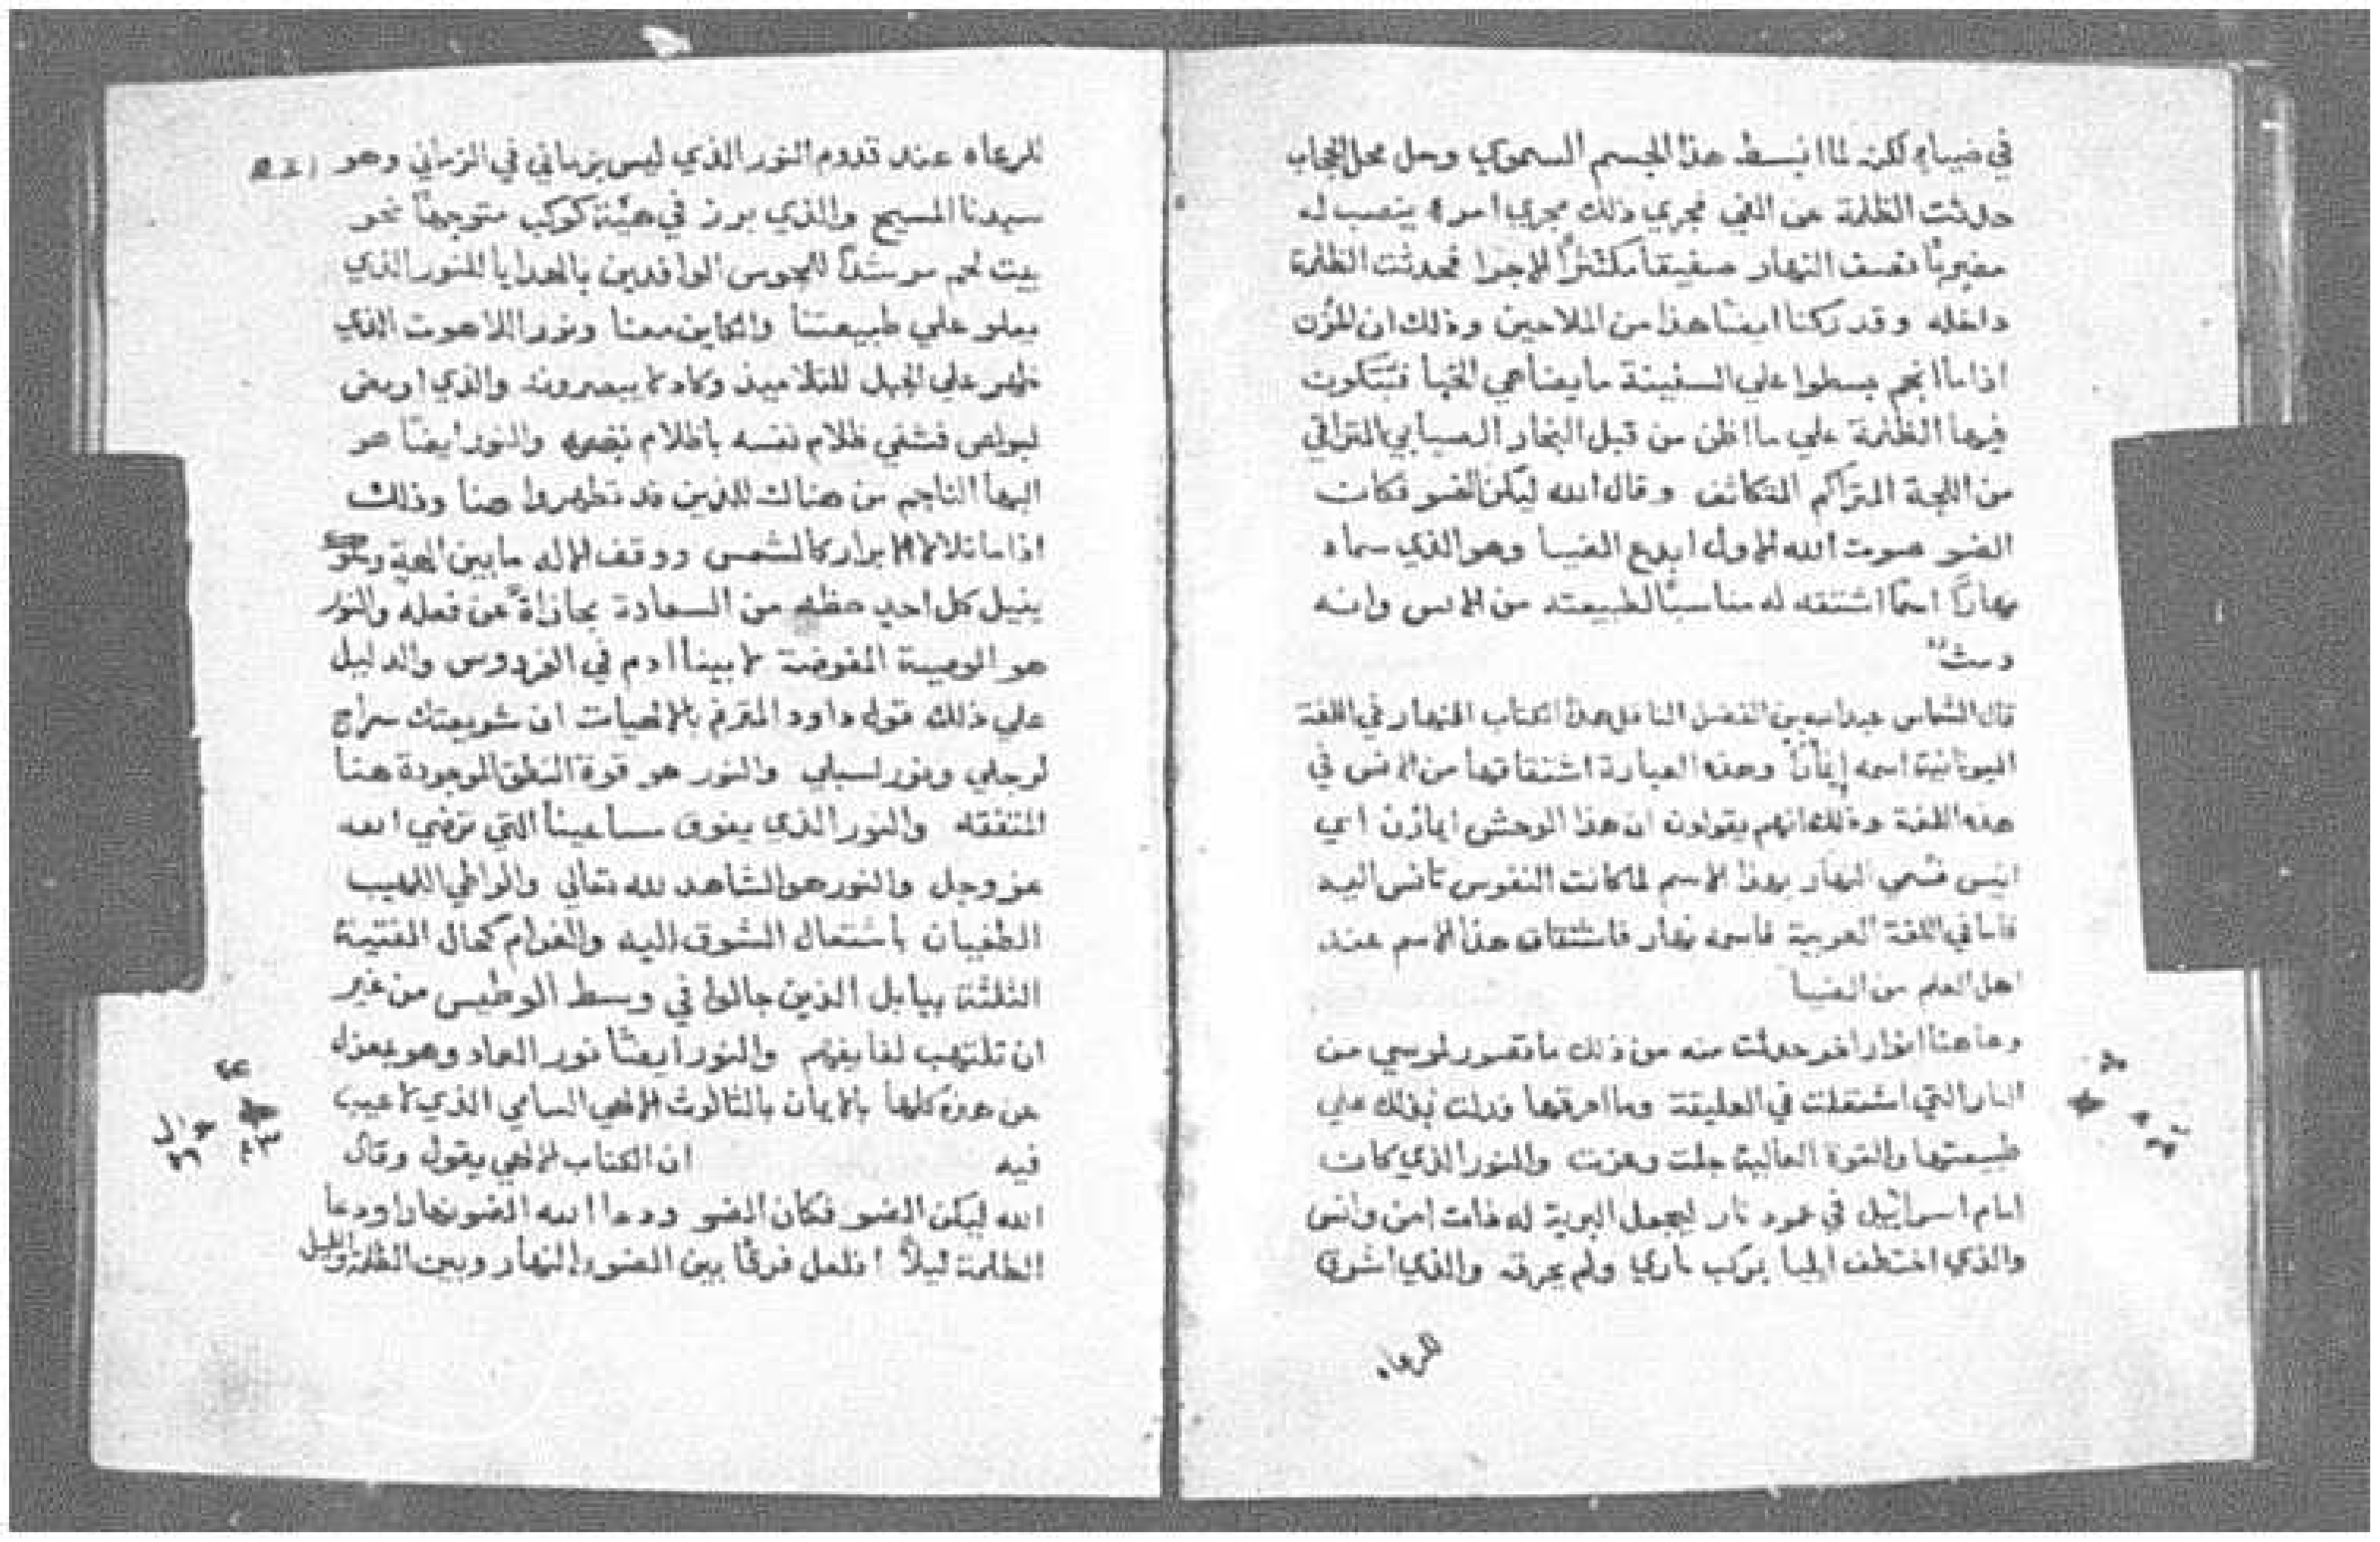 في ضيايه لكن لما انبسط هذا الجسم السموي وحل محل الحجاب
حدثت الظلمة عن الفي فجري ذلك مجري امره ينصب له
مضربًا نصف النهار صفيقا مكتنزًا الاجزا فحدثت الظلمة
داخله وقد ايضًا هذا من الملاحين وذلك ان
اذا ما بسطوا علي السفينة ما يضاهي الخبا فتتكون
فيها الظلمة علي ما اظن من قبل البخار الضبابي المتراقي
من اللجة المتراكم المتكاثف وقال الله ليكن الضو فكان
الضو صوت الله الاول ابدع الضيا وهو الذي سماه
نهارًا اسمًا اشتقه له مناسبًا لطبيعته من الانس وانه
قال الشماس عبدالله بن الفضل الناقل هذا الكتاب النهار في اللغة
اليونانية اسمه وهذه العبارة اشتقاقها من الانس في
هذه اللغة وذلك انهم يقولون ان هذا الوحش اي
انيس فسمي النهار بهذا الاسم لما كانت النفوس تانس اليه
فاما في اللغة العربية فاسمه نهار فاشتقاق هذا الاسم عند
اهل العلم من الضيا
وهاهنا انوار اخر حدثت منه من ذلك ما تصور لموسي من
النار التي اشتعلت في العليقة وما احرقها فدلت بذلك علي
طبيعتها والقوة العالية جلت وعزت والنور الذي كان
امام اسراييل في عمود نار ليجعل البرية له ذات امن وانس
والذي اختطف ايليا بمركب ناري ولم يحرقه والذي اشرق
للرعاه
للرعاه عند قدوم النور الذي ليس بزماني في الزماني وهو
سيدنا المسيح والذي برز في هيئة كوكب متوجهًا نحو
بيت لحم مرشدًا للمجوس الوافدين بالهدايا للنور الذي
يعلو علي طبيعتنا والكاين معنا ونور اللاهوت الذي
ظهر علي الجبل للتلاميذ وكاد لا يبصرونه والذي اومض
لبولص فشفي ظلام نفسه باظلام بصره والنور ايضًا هو
البها الناجم من هناك للذين قد تطهروا هنا وذلك
اذا ما تلالا الابرار كالشمس ووقف الاله ما بين الهة وهو
ينيل كل احد حظه من السعادة مجازاة عن فعله والنور
هو الوصية المفوضة لابينا ادم في الفردوس والدليل
علي ذلك قول داود المترنم بالالهيات ان شريعتك سراج
لرجلي ونور لسبلي والنور هو قوة النطق الموجودة هنا
المتفقه والنور الذي يفوق مساعينا التي ترضي الله
عز وجل والنور هو الشاهد لله تعالي والواطي اللهيب
الطغيان باشتعال الشوق اليه والغرام كحال الفتية
الثلثة ببابل الذين جالوا في وسط الوطيس من غير
ان تلتهب لفايفهم والنور ايضًا نور العماد وهو بمعزل
عن هذه كلها بالايمان بالثالوث الالهي السامي الذي لا عيب
فيه ان الكتاب الالهي يقول وقال
الله ليكن الضو فكان الضو ودعا الله الضو نهارا ودعا
الظلمة ليلاً افلعل فرقًا بين الضو والنهار وبين الظلمة والليل